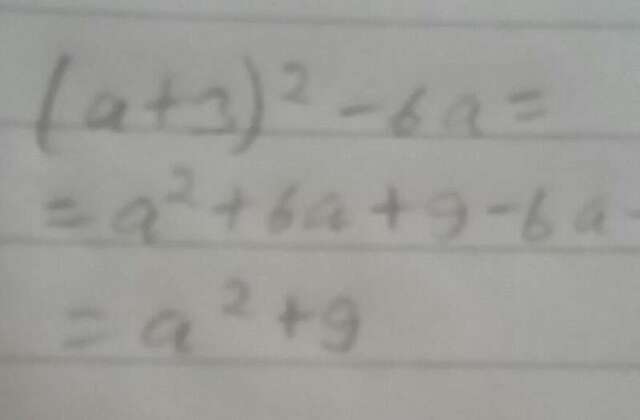 (a+3)² -6a=
=a²+6a+9-6a-
=a²+9